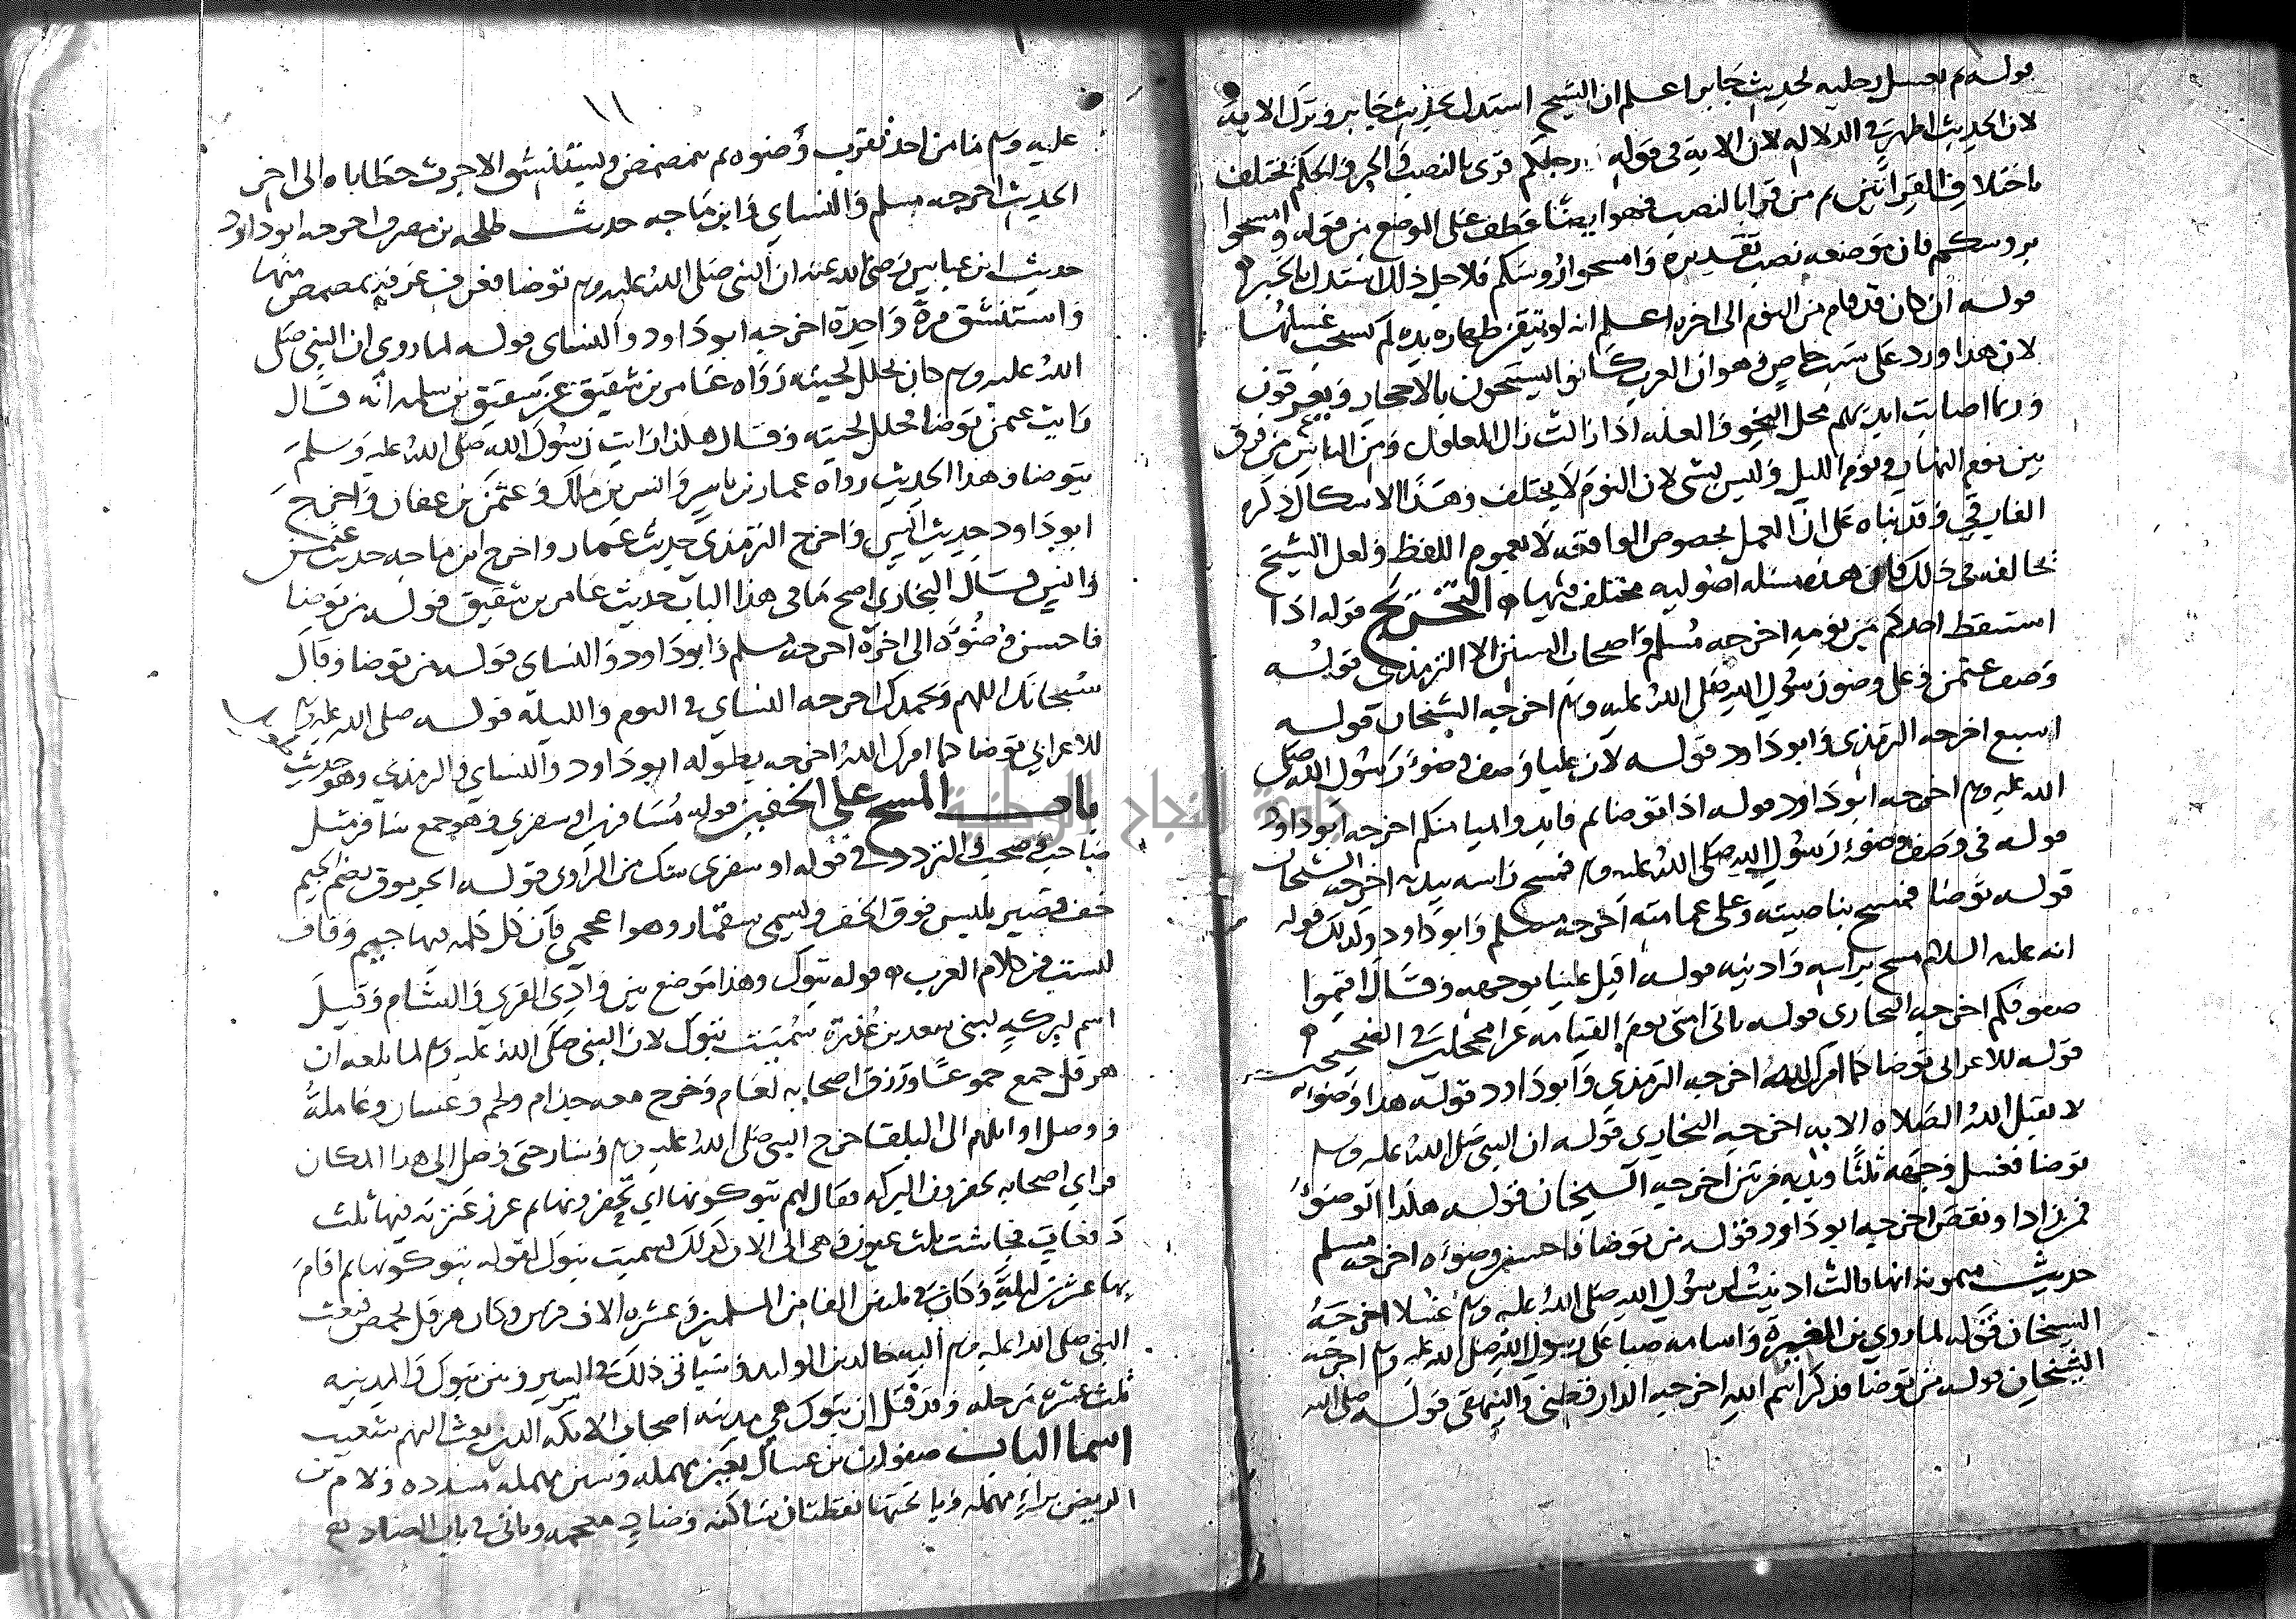 قوله ثم يغسل رجليه لحديث جابر اعلم ان الشيخ استدل بحديث جابر وترك الاية
لان الحديث اظهر في الدلالة لان الاية في قوله وارجلكم قرى بالنصب والجر والحكم مختلف
باختلاف القراتين ثم من قرا بالنصب فهو ايضا عطف على الموضع من قوله وامسحوا
بروسكم فان موضعه نصب تقديره وامسحوا روسكم فلاجل ذلك استدل بالخبر
قوله ان كان قد قام من النوم الى اخره اعلم انه لو تيقن طهارة يده لم يستحب غسلها
لان هذا ورد على سبب خاص وهو ان العرب كانوا يستنجون بالاحجار ويعرقون
وربما اصابت ايديهم محل النجو والعلة اذا زالت زال المعلول ومن الناس من فرق
بين نوم النهار ونوم الليل وليس بشى لان النوم لا يختلف وهذا الاشكال ذكره
الفارقي وقد بناه على ان العمل بخصوص الواقعة لا بعموم اللفظ ولعل الشيخ
يخالفه في ذلك فان هذه مسئلة اصولية مختلف فيها التخريج قوله اذا
استيقظ احدكم من نومه اخرجه مسلم واصحاب السنن الا الترمذي قوله
وصف عثمن وعلى وضوء رسول الله صلى الله عليه وسلم اخرجه الشيخان قوله
اسبغ اخرجه الترمذي وابو داود قوله لان عليا وصف وضوء رسول الله صلى
الله عليه وسلم اخرجه ابو داود قوله اذا توضاتم فابدوا بميامنكم اخرجه ابو داود
قوله في وصف وضوء رسول الله صلى الله عليه وسلم فمسح راسه بيديه اخرجه الشيخان
قوله توضا فمسح بناصيته وعلى عمامته اخرجه مسلم وابو داود وكذلك قوله
انه عليه السلام مسح براسه واذنيه قوله اقبل علينا بوجهه وقال اقيموا
صفوفكم اخرجه البخاري قوله ياتى امتى يوم القيامة غرا محجلين في الصحيحين
قوله للاعرابي توضا كما امرك الله اخرجه الترمذي وابو داود قوله هذا وضوء
لا يقبل الله الصلاة الا به اخرجه البخاري قوله ان النبي صلى الله عليه وسلم
توضا فغسل وجهه ثلثا ويديه مرتين اخرجه الشيخان قوله هكذا الوضوء
فمن زاد او نقص اخرجه ابو داود قوله من توضا فاحسن وضوءه اخرجه مسلم
حديث ميمونة انها قالت ادنيت لرسول الله صلى الله عليه وسلم غسلا اخرجه
الشيخان قوله لما روي ان المغيرة واسامة صبا على رسول الله صلى الله عليه وسلم اخرجه
الشيخان قوله من توضا وذكر اسم الله اخرجه الدارقطني والبيهقي قوله صلى الله
١١
عليه وسلم ما من احد يقرب وضوه ثم يتمضمض ويستنشق الا جرت خطاياه الى اخر
الحديث اخرجه مسلم والنساي وابن ماجه حديث طلحة بن مصرف اخرجه ابو داود
حديث ابن عباس رضي الله عنه ان النبي صلى الله عليه وسلم توضا فغرف غرفة تمضمض منها
واستنشق مرة واحدة اخرجه ابو داود والنساي قوله لما روي ان النبي صلى
الله عليه وسلم كان يخلل لحيته رواه عامر بن شقيق عن شقيق بن سلمة انه قال
رايت عثمن توضا فخلل لحيته وقال هكذا رايت رسول الله صلى الله عليه وسلم
يتوضا وهذا الحديث رواه عمار بن ياسر وانس بن مالك وعثمن بن عفان واخرج
ابو داود حديث انس واخرج الترمذي حديث عمار واخرج ابن ماجه حديث عثمن
وانس قال البخاري اصح ما في هذا الباب حديث عامر بن شقيق قوله من توضا
فاحسن وضوءه الى اخره اخرجه مسلم وابو داود والنساي قوله من توضا وقال
سبحانك اللهم وبحمدك اخرجه النساي في اليوم والليلة قوله صلى الله عليه وسلم
للاعرابي توضا كما امرك الله اخرجه بطوله ابو داود والنساي والترمذي وهو حديث حسن
باب المسح على الخفين قوله مسافرين او سفري وهو جمع سافر مثل
صاحب وصحب والتردد في قوله او سفرى شك من الراوى قوله الجرموق بضم الجيم
خف قصير يلبس فوق الخف ويسمى وهو اعجمي فان كل كلمة فيها جيم وقاف
ليست من كلام العرب قوله تبوك وهذا موضع بين وادي القرى والشام وقيل
اسم لبركة لبنى سعد بن عذرة سميت تبوك لان النبي صلى الله عليه وسلم لما بلغه ان
هرقل جمع جموعا ورزق اصحابه لعام وخرج معه جذام ولخم وغسان وعاملة
ووصل اوايلهم الى البلقا خرج النبي صلى الله عليه وسلم وسار حتى وصل الى هذا المكان
فراي اصحابه يحفرون البركة فقال لهم تبوكونها اي تحفرونها ثم غرز عنزته فيها ثلث
دفعات فجاشت ثلث عيون فهي الى الان كذلك فسميت تبوك لقوله تبوكونها ثم اقام
بها عشرين ليلة وكان في ثلثين الفا من المسلمين وعشرة الاف فرس وكان هرقل بحمص فبعث
النبي صلى الله عليه وسلم اليه خالد بن الوليد وسياتي ذلك في السير وبين تبوك والمدينة
ثلث عشرة مرحلة وقد قيل ان تبوك هي مدينة اصحاب الايكة الذين بعث اليهم شعيب
اسما الباب صفوان بن عسال بعين مهملة وسين مهملة مشددة ولام بن
الربيض براء مهملة ويا تحتها نقطتان ساكنة وضاد معجمة وياتى في باب الصاد
جامعة النجاح الوطنية